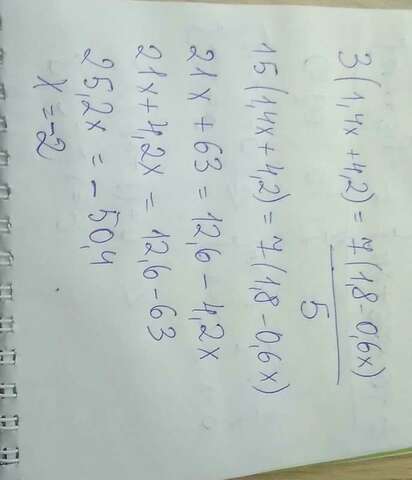 3(1,4x+4,2) = 7(1,8-0,6x)
5
15(1,4x+4,2) = 7(1,8-0,6x)
21x + 63 = 12,6 - 4,2x
21x + 4,2x = 12,6-63
25,2x = - 50,4
x = -2